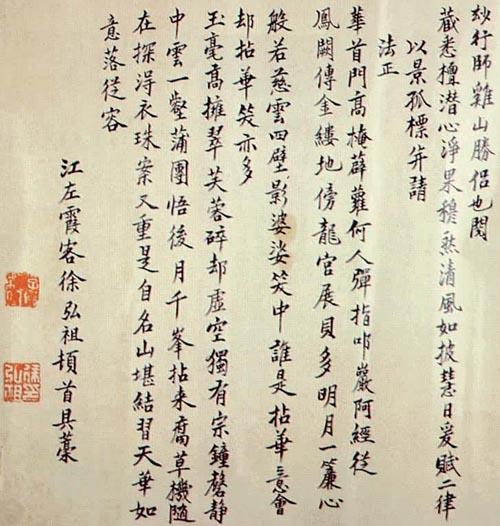 玅行師雞山勝侶也閱
藏悉檀潛心淨果穆然清風如披慧日爰賦二律
以景孤標并請
法正
華首門高掩薜蘿何人彈指叩巖阿經從
鳳闕傳金縷地傍龍宮展貝多明月一簾心
般若慈雲四壁影婆娑笑中誰是拈華意會
却拈華笑亦多
玉毫高擁翠芙蓉碎却虛空獨有宗鐘磬靜
中雲一壑蒲團悟後月千峯拈来腐草機隨
在探淂衣珠案又重是自名山堪結習天華如
意落從容
江左霞客徐弘祖頓首具藁